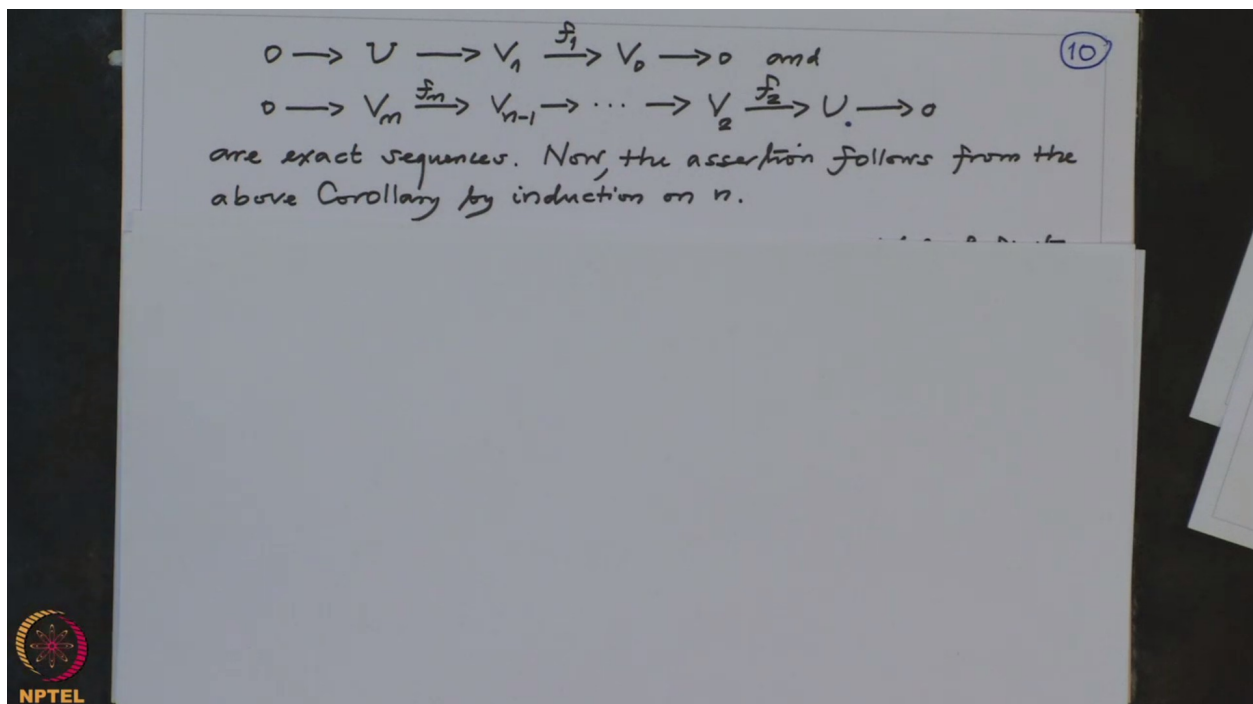 0 ⟶ U ⟶ V₁ —f₁→ V₀ ⟶ 0 and
⑩
0 ⟶ Vₙ —fₙ→ Vₙ₋₁ ⟶ ⋯ ⟶ V₂ —f₂→ U ⟶ 0
are exact sequences. Now, the assertion follows from the
above Corollary by induction on n.
NPTEL